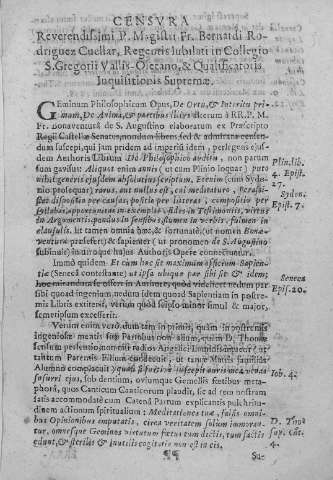 CENSVRA
Reverendissimi P. Magistri Fr. Bernardi Ro-
driguez Cuellar, Regentis Iubilati in Collegio
S. Gregorii Vallis-Oletano, & Qualificatoris
Inquisitionis Supremæ.
GEminum Philosophicum Opus, De Ortu, & Interitu pri-
mum, De Anima, & partibus eius alterum à RR. P. M.
Fr. Bonaventura de S. Augustino elaboratum ex Præscripto
Regii Castellæ Senatus
dum suscepi, qui jam pridem ad imperiũ idem, perlegens ejus-
dem Authoris Librum De Philosophico auditu, non parum
sum gavisus: Aliquot enim annis (ut cum Plinio loquar) pare
nihil generis ejusdem absolutius scriptum, Erenim (cum Sydo-
nio prosequar) rarus, aut nullus est, cui meditaturo,
disposítio per causas; positio per litteras; compositio per
syllabas; opportunitas in exemplis; fides in Testimoniis; virtus
in Argumentis; pondus in sensibus; flumen in verbis; fulmen in
clausulis.
ventura præfefert) & sapienter (ut pronomen de S. Augustino
in utroque hujus Authoris Opere connectuntur.
Immò quidem Et cum hoc sit maximum officium Sapien-
tiæ (Senecâ contestante) ut ipsa ubique par sibi sit & idem;
in Authore, quod videlicet nedum par
sibi quoad ingenium, nedum idem quoad Sapientiam in postre-
mis Libris extiterit, verum quod seipso minor simul & major,
semetipsum excesserit.
Verùm enim verò dum tam in primis, quàm in postremis
ingeniosæ mentis suæ Partibus non alium, quam D. Thomæ
sensum
tantum Parentis Filium
Alumno complacuit
susurri ejus, Iob dentium, oviumque Gemellis fœtibus metapho-
rã, quos Canticum Canticorum plaudit, sic ad rem nostram
satis accommodatè cum Catena Patrum explicantis pulchritu-
dinem actionum spiritualium: Meditationes tuæ, falsis omni-
bus Opinionibus amputatis, circa veritatem solùm immoran-
tur, omnesque Geminos virtutum fœtus tum dictis, tum factis
edunt, & sterilis & inutilis cogitatio non est in eis.
¶¶
Su-
Plin. lib.
4. Epist.
27.
Sydon.
Epist. 7.
Seneca
Epis. 20.
Iob. 4.
D. Tho.
sup. Cãt.
4.